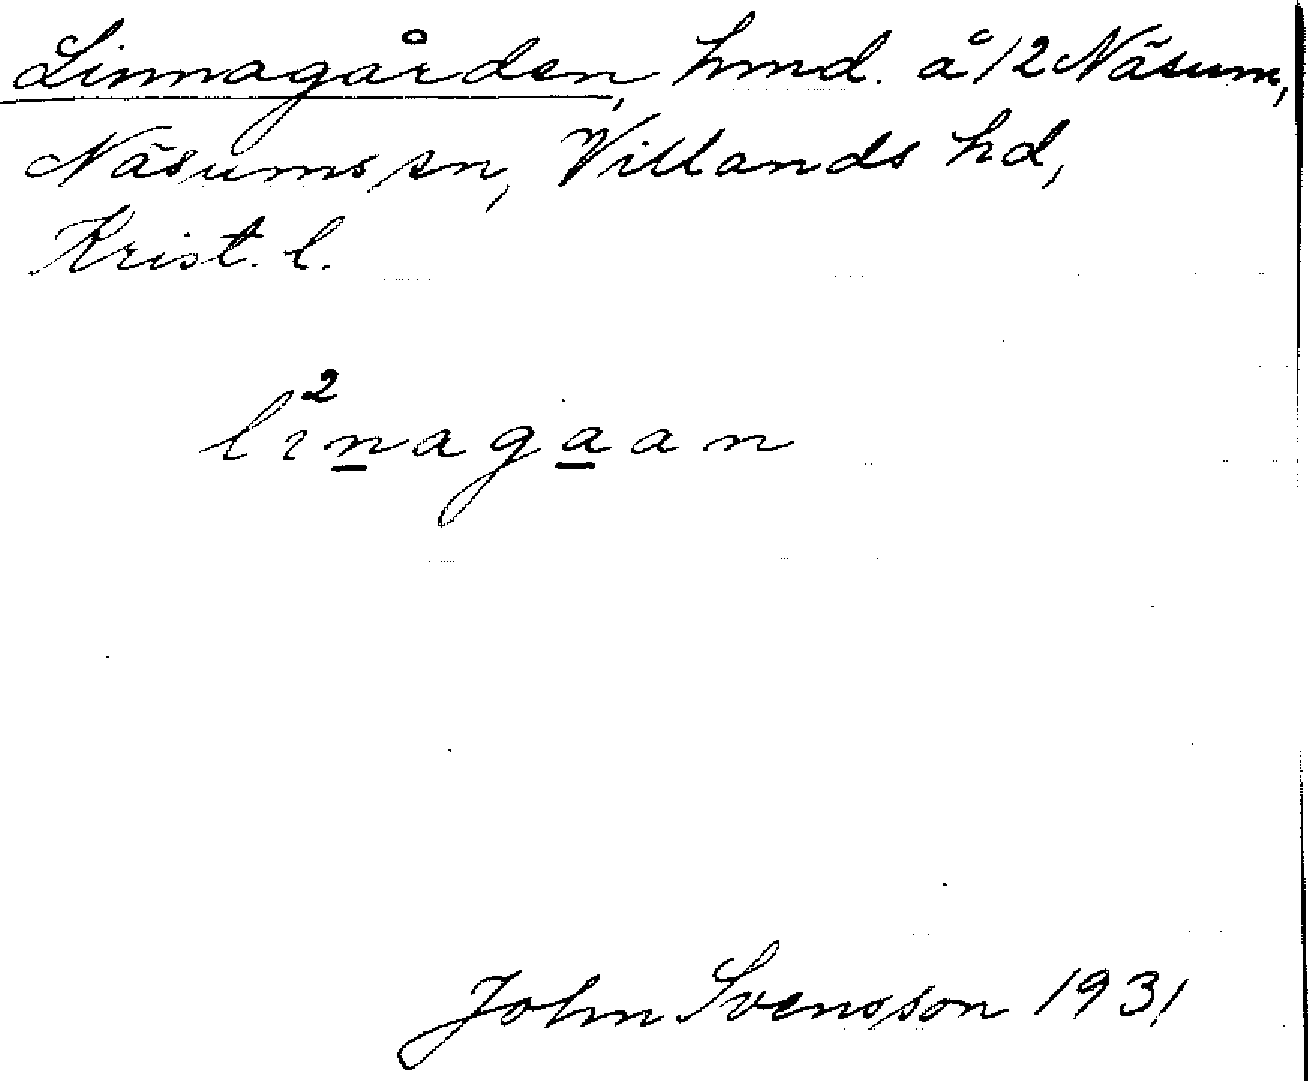 Linnagården, hmd. å 12 Näsum,
Näsums sn, Villands hd,
Krist. l.
lı²n̲aga̲an
John Svensson 1931